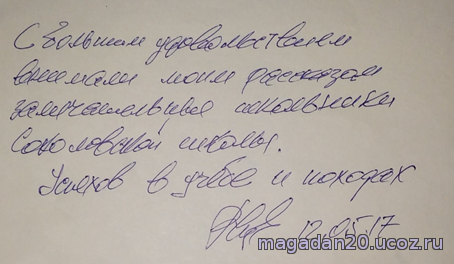 С большим удовольствием
внимали моим рассказам
замечательные школьники
Соколовской школы.
Успехов в учёбе и походах
12.05.17
magadan20.ucoz.ru